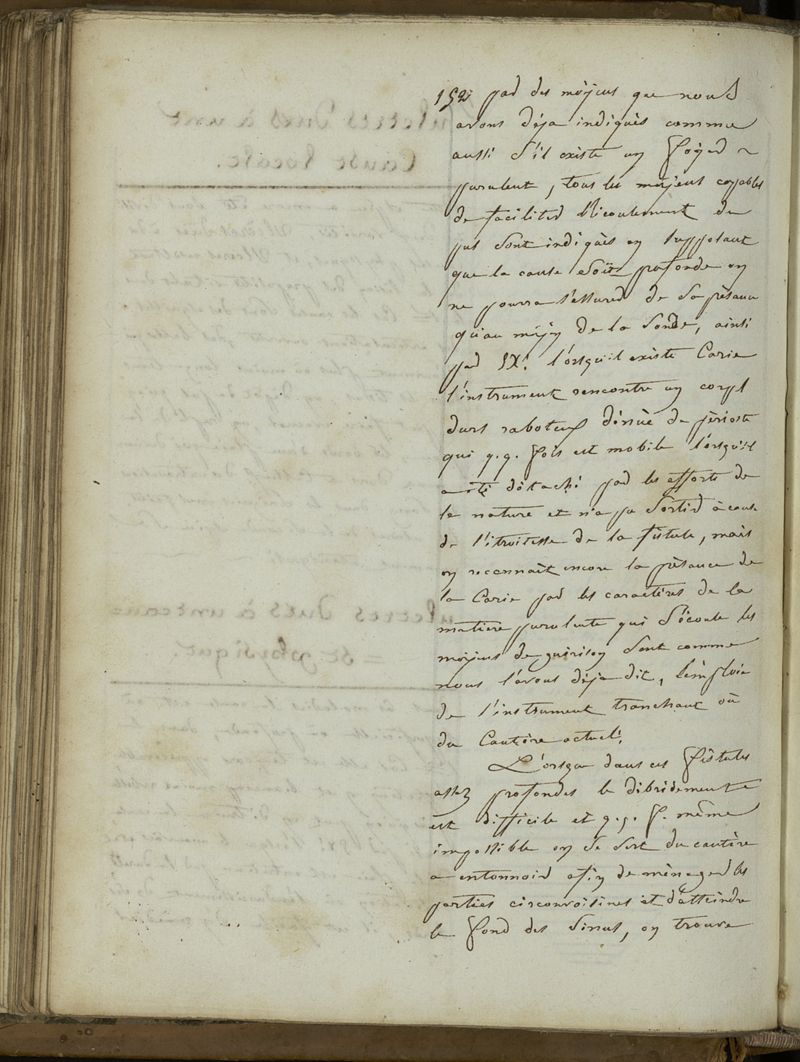 152 par des moÿens que nous
avons déja indiqués comme
aussi s'il existe un foÿer
purulent, tous les moÿens capables
de faciliter l'écoulement du
pus sont indiqués en supposant
que la cause soit profonde on
ne pourra s'assurer de sa présence
qu'au moÿen de la sonde, ainsi
par Ex: lorsqu'il existe Carie
l'instrument rencontre un corps
durs raboteux dénué de périoste
qui q.q. fois est mobile lorsqu'il
a été détaché par les efforts de
la nature et n'a pu sortir à cause
de l'étroitesse de la fistule, mais
on reconnaît encore la présence de
la Carie par les caractères de la
matière purulente qui s'écoule les
moÿens de guérison sont comme
nous l'avons déja dit, l'emploie
de l'instrument tranchant où
du Cautère actuel.
L'orsque dans ces fistules
assez profondes le débridement
est difficile et q.q. f. même
impossible on se sert du cautère
a entonnoir afin de ménager les
parties circonvoisines et d'atteindre
le fond des sinus, on trouve